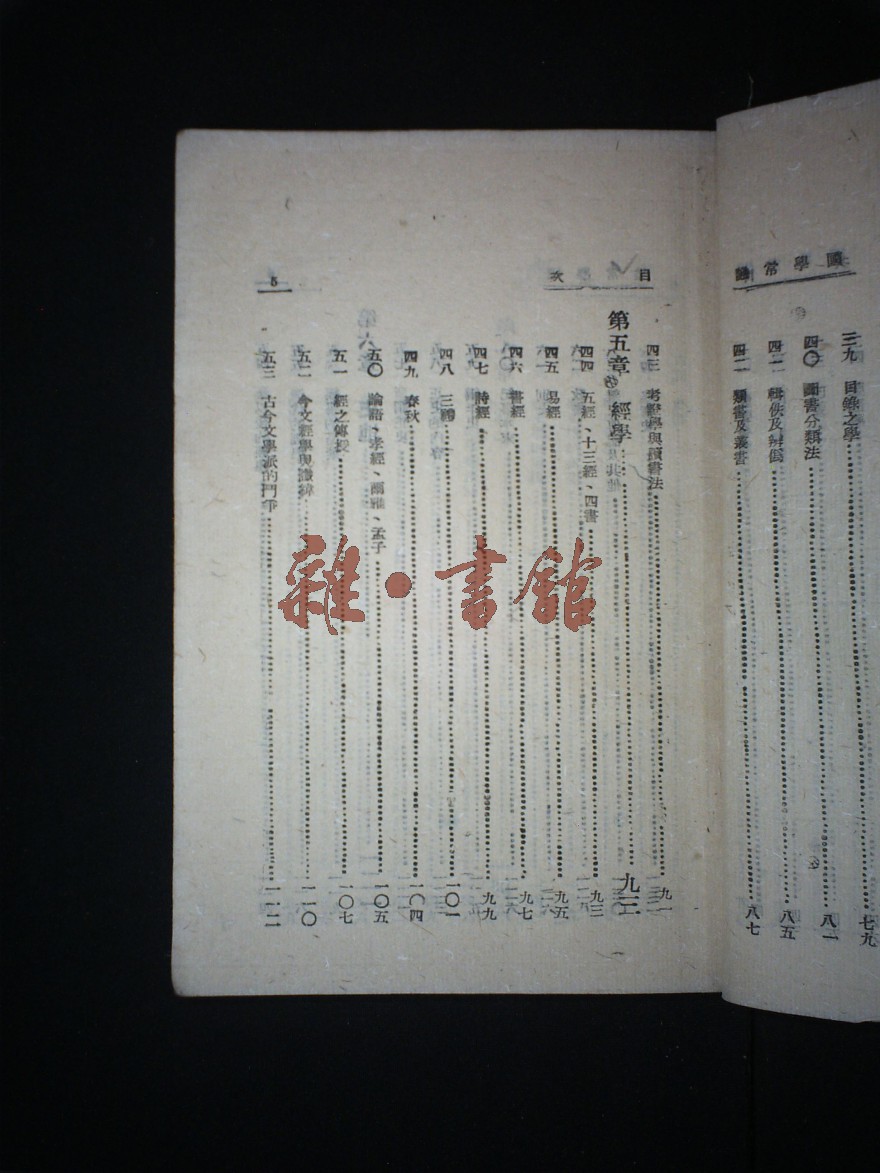 國學常識
三九 目錄之學 七九
四〇 圖書分類法 八一
四一 輯佚及辨僞 八五
四二 類書及叢書 八七
目次
5
四三 考證學與讀書法 九一
第五章 經學 九三
四四 五經、十三經、四書 九三
四五 易經 九五
四六 書經 九七
四七 詩經 九九
四八 三禮 一〇一
四九 春秋 一〇四
五〇 論語、孝經、爾雅、孟子 一〇五
五一 經之傳授 一〇七
五二 今文經學與讖緯 一一〇
五三 古今文學派的鬥爭 一一二
雜·書館